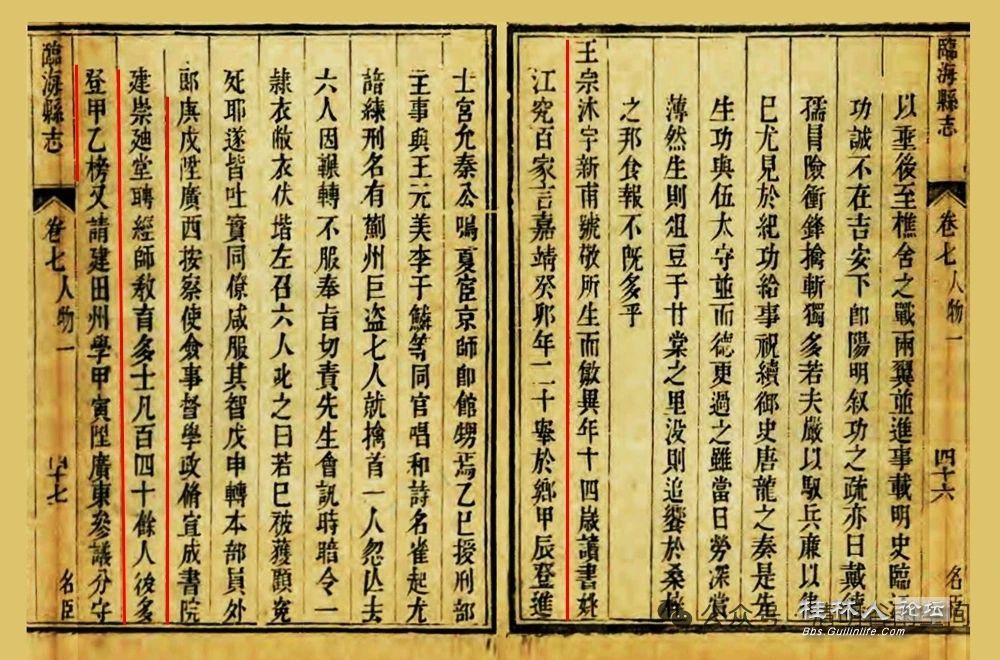 臨海縣志 卷七 人物一 四十六 名臣
以垂後至樵舍之戰兩翼並進事載明史臨
功誠不在吉安下卽陽明叙功之疏亦曰戴德
孺冒險衝鋒擒斬獨多若夫嚴以馭兵廉以律
巳尤見於紀功給事祝續御史唐龍之奏是先
生功與伍太守並而德更過之雖當日勞深賞
薄然生則俎豆于甘棠之里没則追饗於桑梓
之邦食報不旣多乎
王宗沐字新甫號敬所生而敏異年十四歲讀書姚
江究百家言嘉靖癸卯年二十舉於鄉甲辰登進
士宮允秦公鳴夏宦京師卽館甥焉乙巳授刑部
主事與王元美李于鱗等同官唱和詩名雀起尤
諳練刑名有薊州巨盗七人就擒首一人忽亾去
六人因輾轉不服奉旨切責先生會訊時暗令一
隸衣敝衣伏堦左召六人叱之曰若巳被獲願寃
死耶遂皆吐實同僚咸服其智戊申轉本部員外
郎庚戌陞廣西按察使僉事督學政脩宣成書院
建崇廸堂聘經師教育多士凡百四十餘人後多
登甲乙榜又請建田州學甲寅陞廣東參議分守
臨海縣志 卷七 人物一 四十七 名臣
桂林人论坛
Bbs.Guilinlife.com